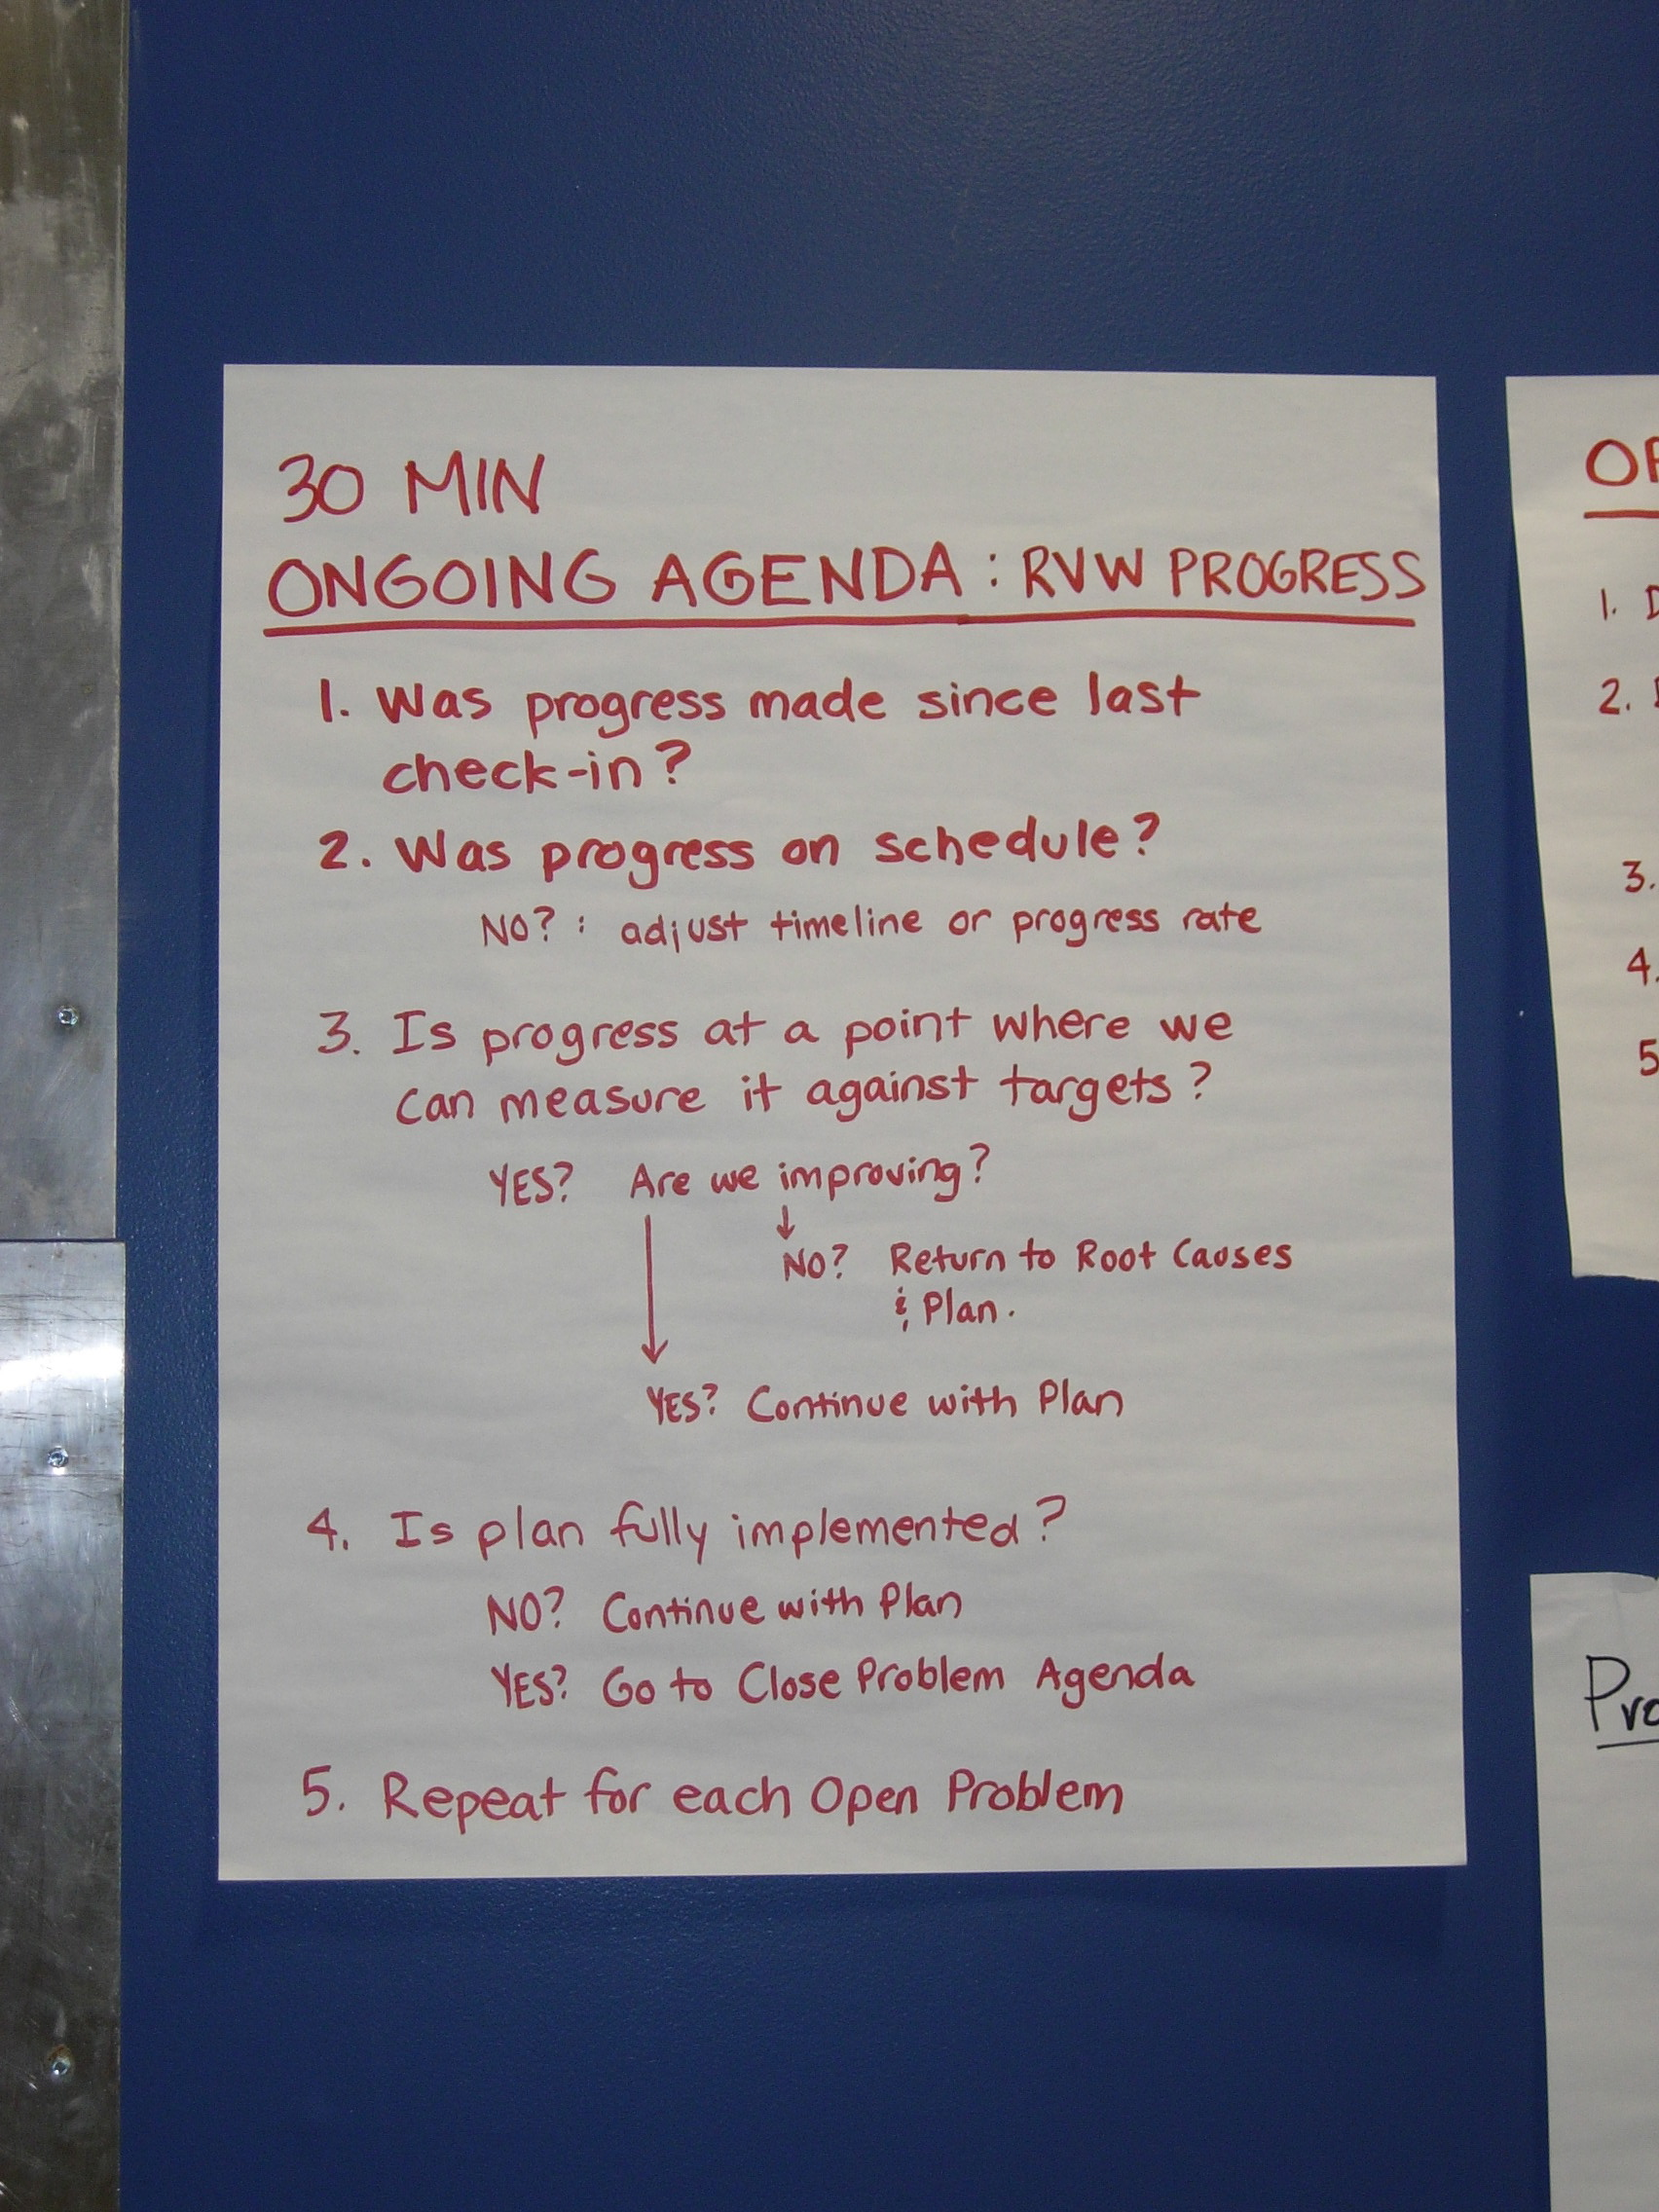 30 MIN
ONGOING AGENDA : RVW PROGRESS
1. Was progress made since last
check-in?
2. Was progress on schedule?
NO? : adjust timeline or progress rate
3. Is progress at a point where we
can measure it against targets?
YES? Are we improving?
↓
NO? Return to Root Causes
& Plan.
↓
YES? Continue with Plan
4. Is plan fully implemented?
NO? Continue with Plan
YES? Go to Close Problem Agenda
5. Repeat for each Open Problem
1.
2.
3.
4.
5